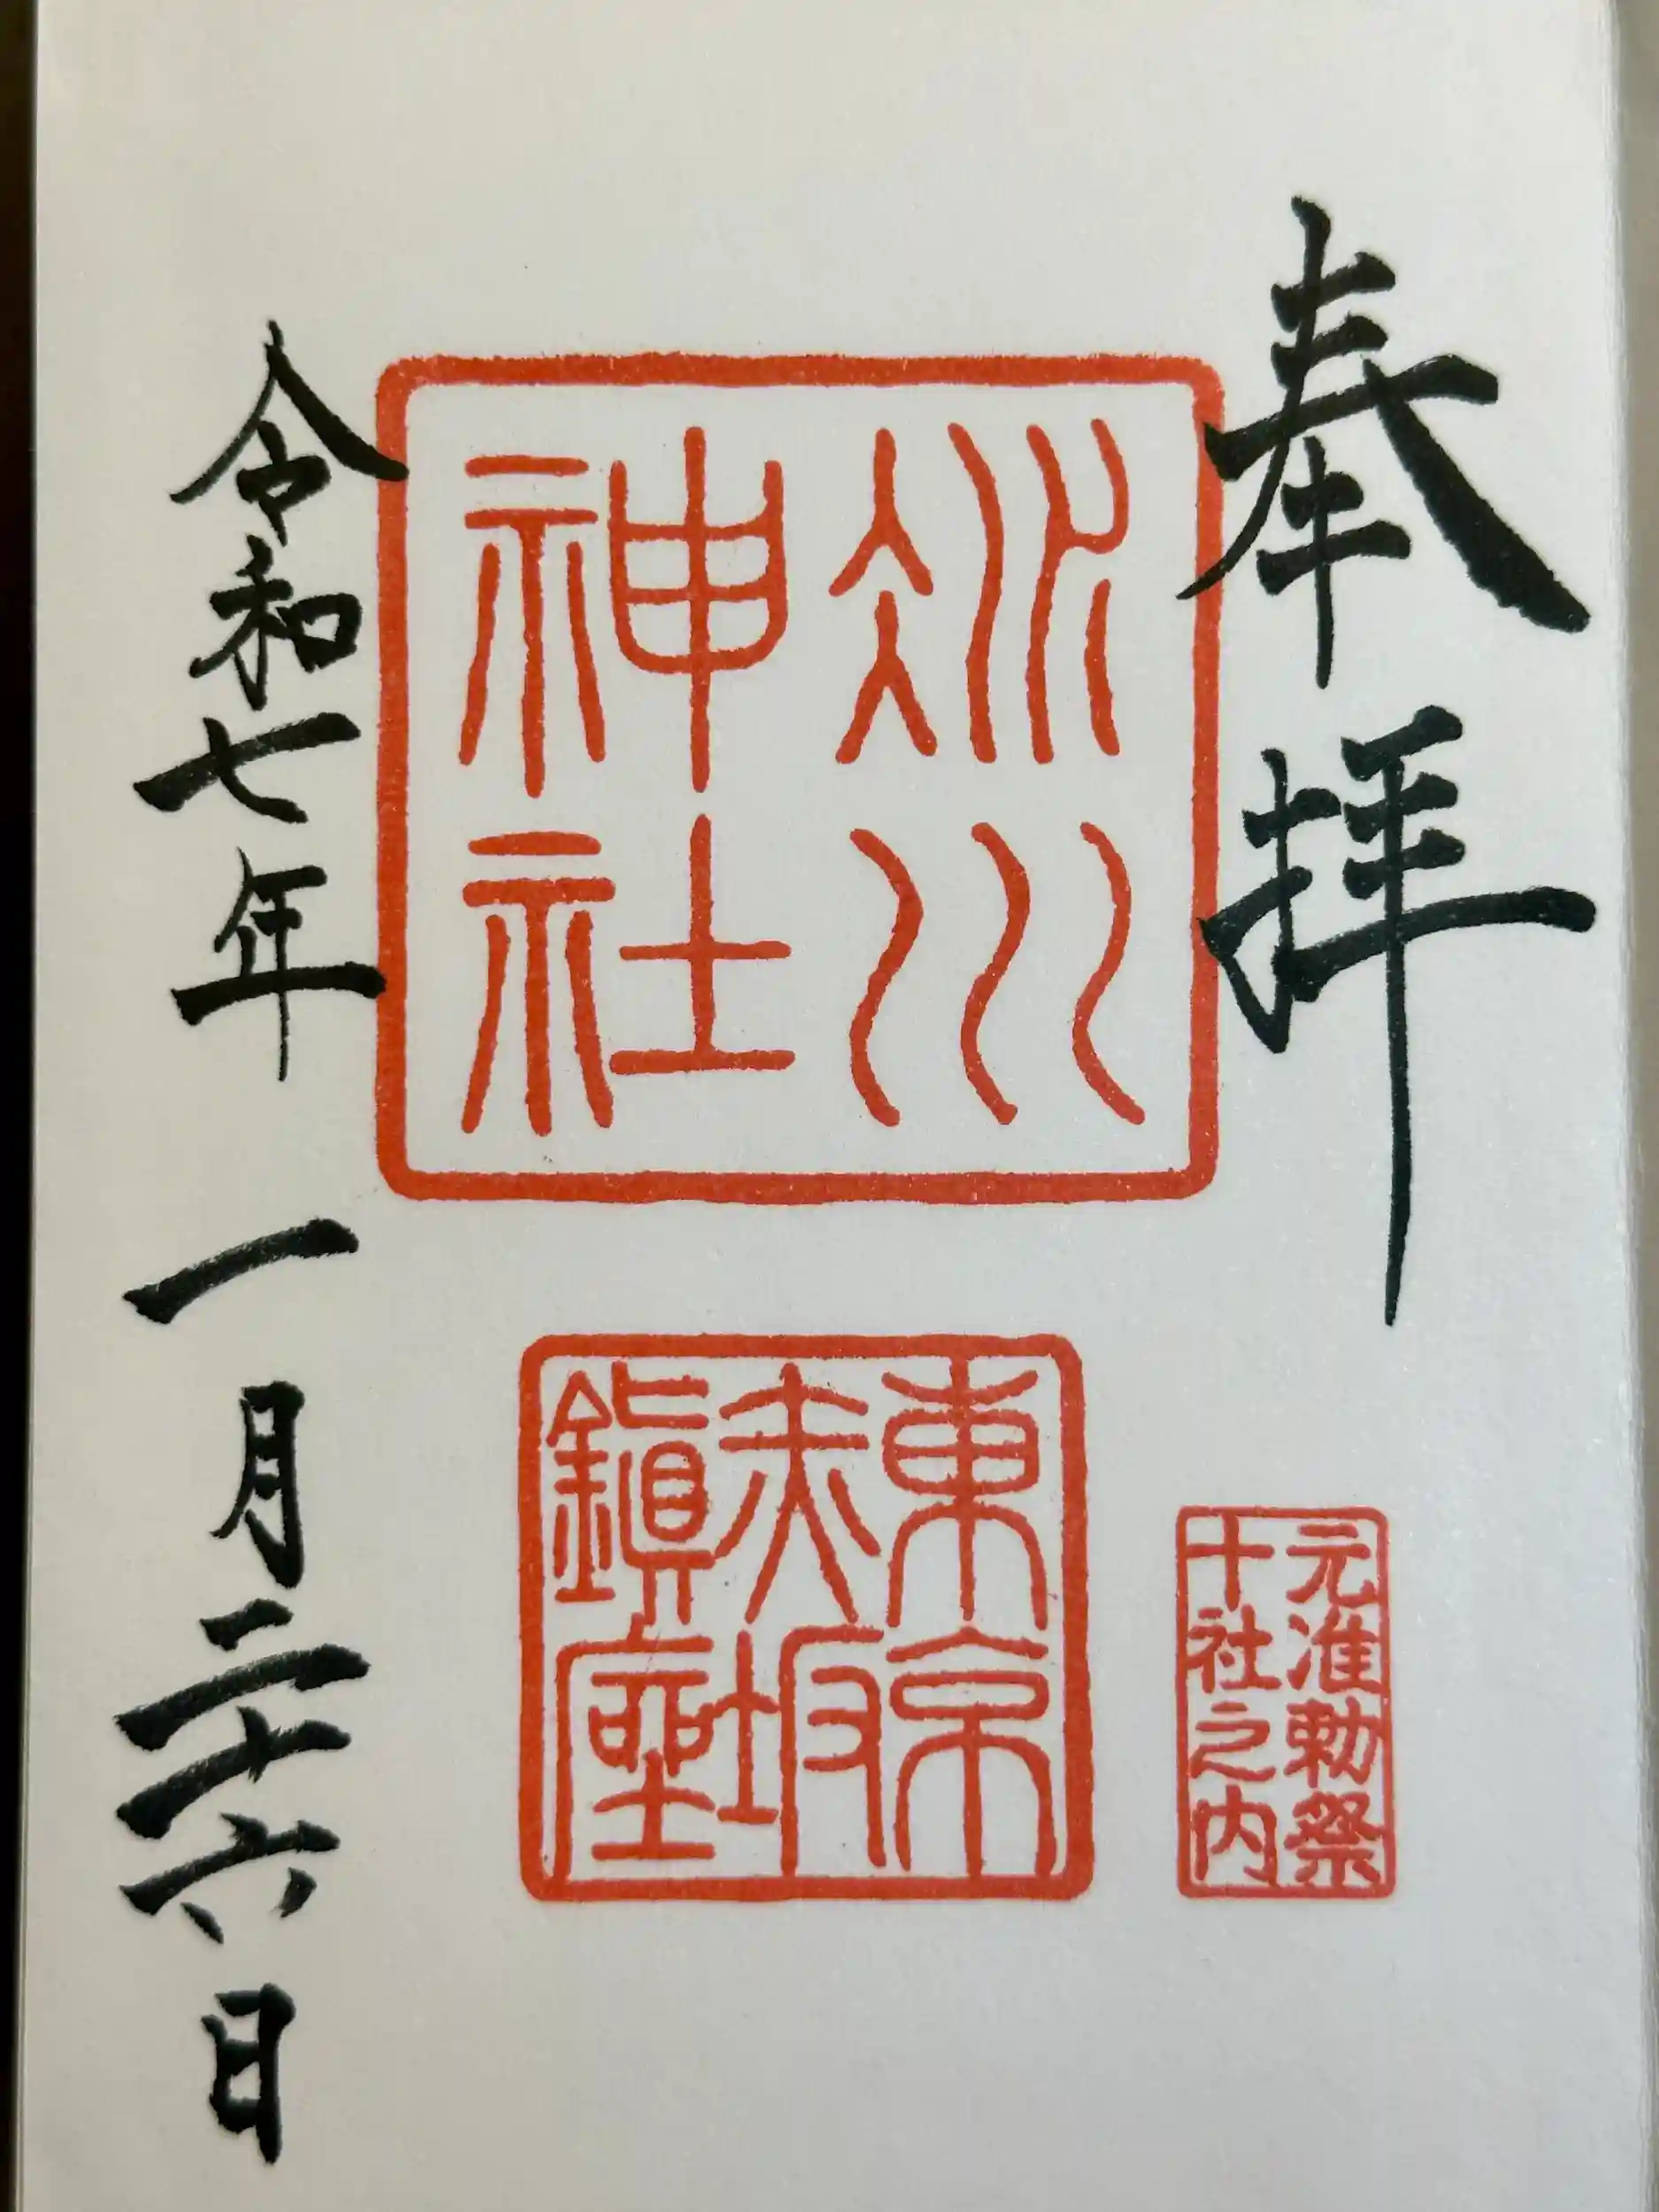 奉拝
元准勅祭
十社之内
氷川
神社
東京
赤坂
鎮座
令和七年一月二十六日